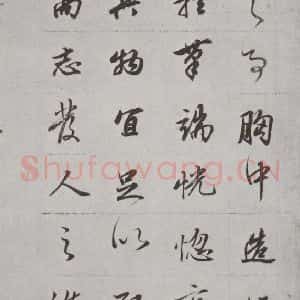 胸中造
筆端恍惚
其物宜足以
志發人之
Shufawang.CN